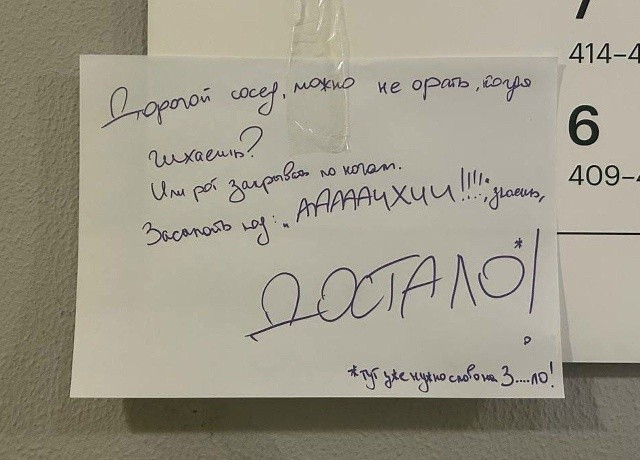 7
414-4
6
409-4
Дорогой сосед, можно не орать, когда
чихаешь?
Или рот закрывать по ночам.
Засыпать под: „АААААЧХИИ!!!!", знаешь,
ДОСТАЛО*!
*тут уже нужно слово на З....ЛО!